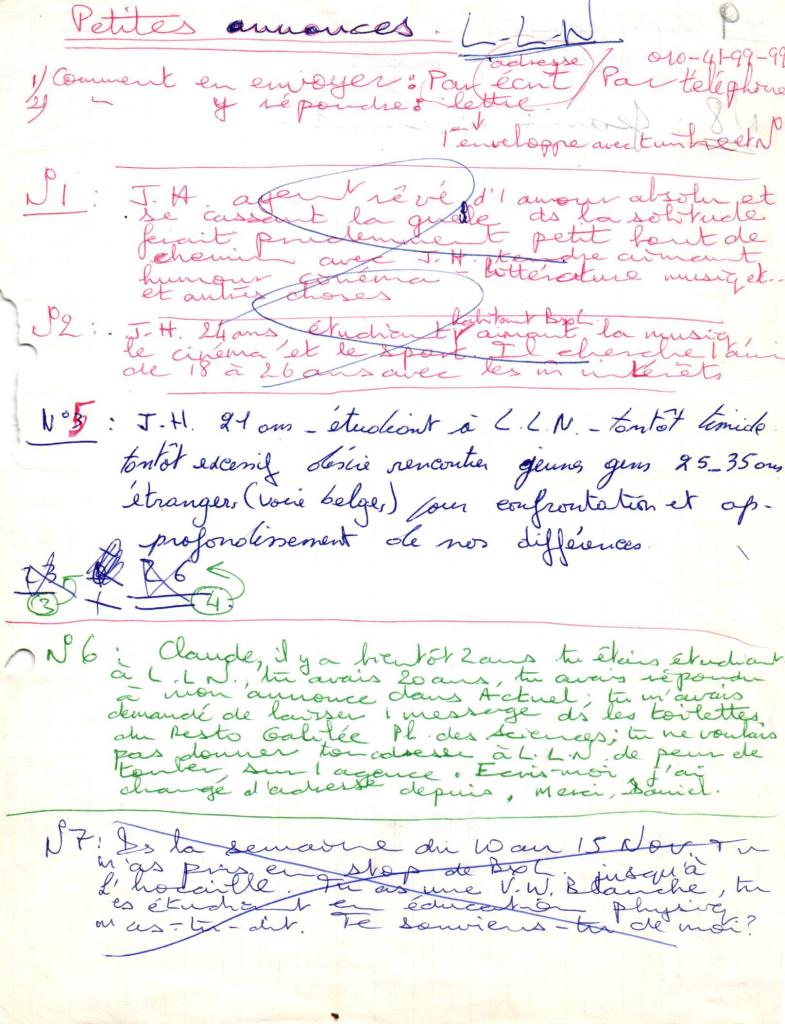 Petites annonces. L.L.N P
adresse 010-41-99-99
1) Comment en envoyer : Par écrit / Par téléphone
2) " y répondre : lettre
1 enveloppe avec timbre et N°
N°1 : J.H. agent rêvé d'1 amour absolu et
se cassant la gueule ds la solitude
ferait prudemment petit bout de
chemin avec J.H. tendre aimant
humour cinéma - littérature musiq etc..
et autres choses
habitant Bxl.
N°2 : J.H. 24 ans, étudiant aimant la musiq
le cinéma et le sport. Il cherche 1 ami
de 18 à 26 ans avec les m intérêts
N°5 : J.H. 21 ans - étudiant à L.L.N. - tantôt timide
tantôt excessif désire rencontrer jeunes gens 25-35 ans
étrangers (voire belges) pour confrontation et ap-
profondissement de nos différences.
3 + 4
N°6 : Claude, il y a bientôt 2 ans tu étais étudiant
à L.L.N., tu avais 20 ans, tu avais répondu
à mon annonce dans Actuel ; tu m'avais
demandé de laisser 1 message ds les toilettes
du Resto Galilée Pl. des Sciences ; tu ne voulais
pas donner ton adresse à L.L.N. de peur de
tomber sur 1 agence. Ecris-moi, j'ai
changé d'adresse depuis, Merci, Daniel.
N°7 : Ds la semaine du 10 au 15 Nov Tu
m'as pris en stop de Bxl. jusqu'à
L'hocaille. Tu as une V.W. Blanche, tu
es étudiant en éducation physiq
m'as-tu-dit. Te souviens-tu de moi?